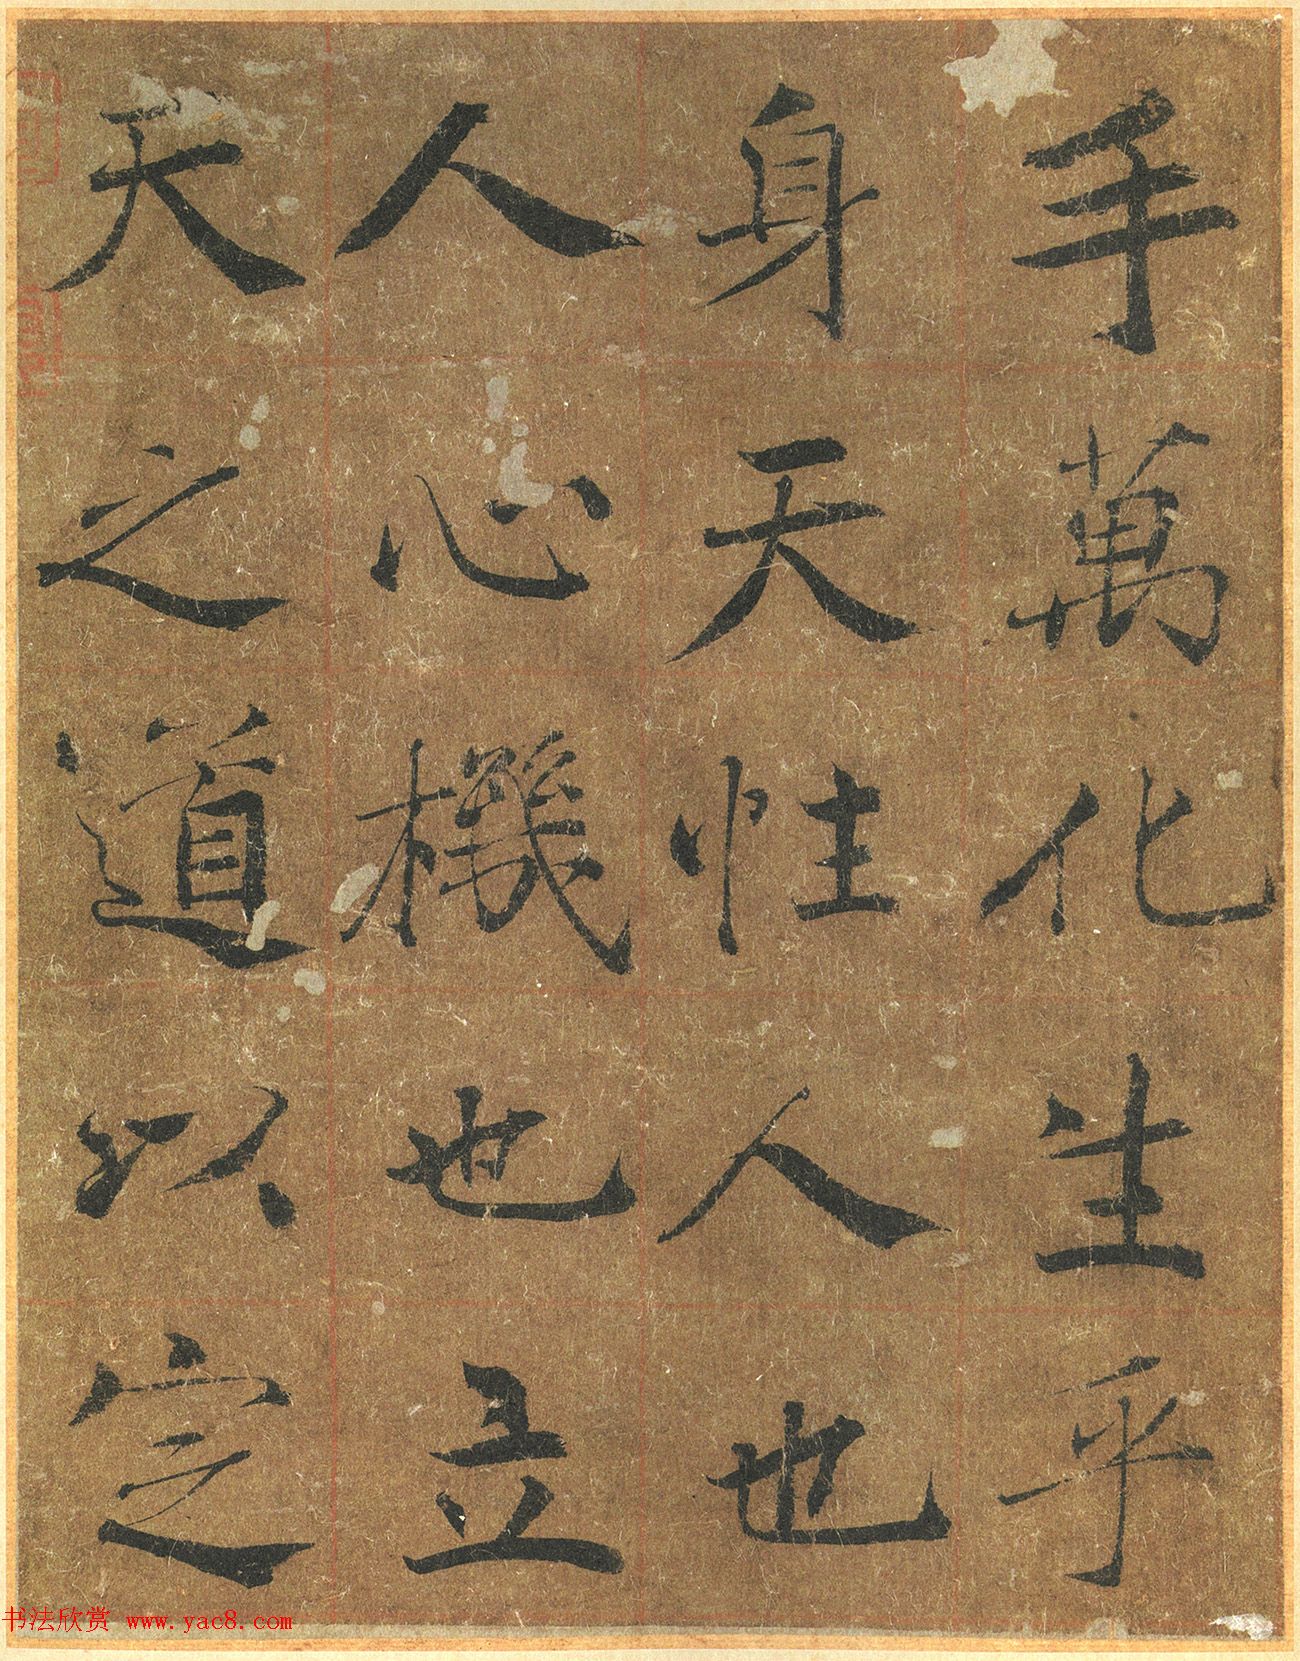 手萬化生乎
身天性人也
人心機也立
天之道以定
书法欣赏 www.yac8.com